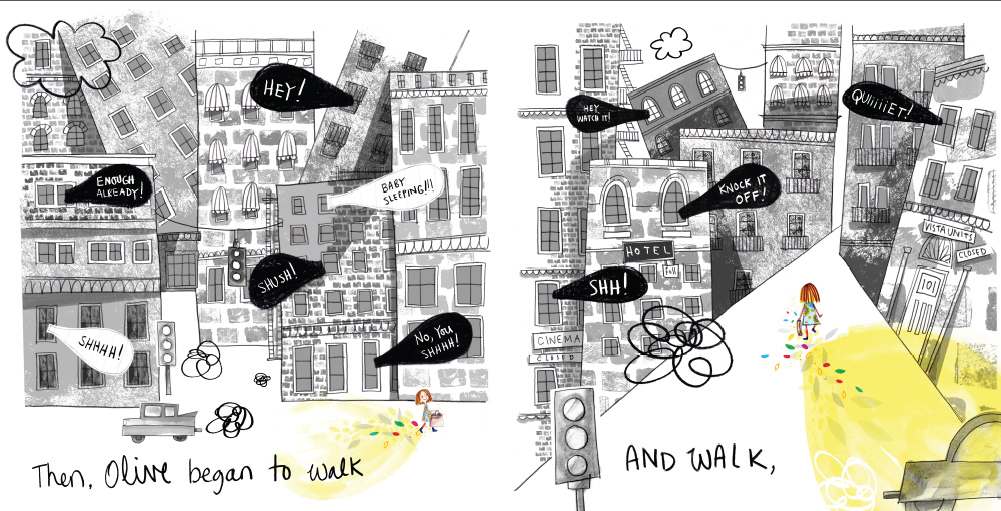 HEY!
ENOUGH
ALREADY!
BABY
SLEEPING!!!
SHUSH!
NO, YOU
SHHHH!
SHHHH!
Then, Olive began to walk
HEY
WATCH IT!
QUiiiiET!
KNOCK IT
OFF!
HOTEL
full
SHH!
VISTA UNITS
CLOSED
101
CINEMA
CLOSED
AND WALK,